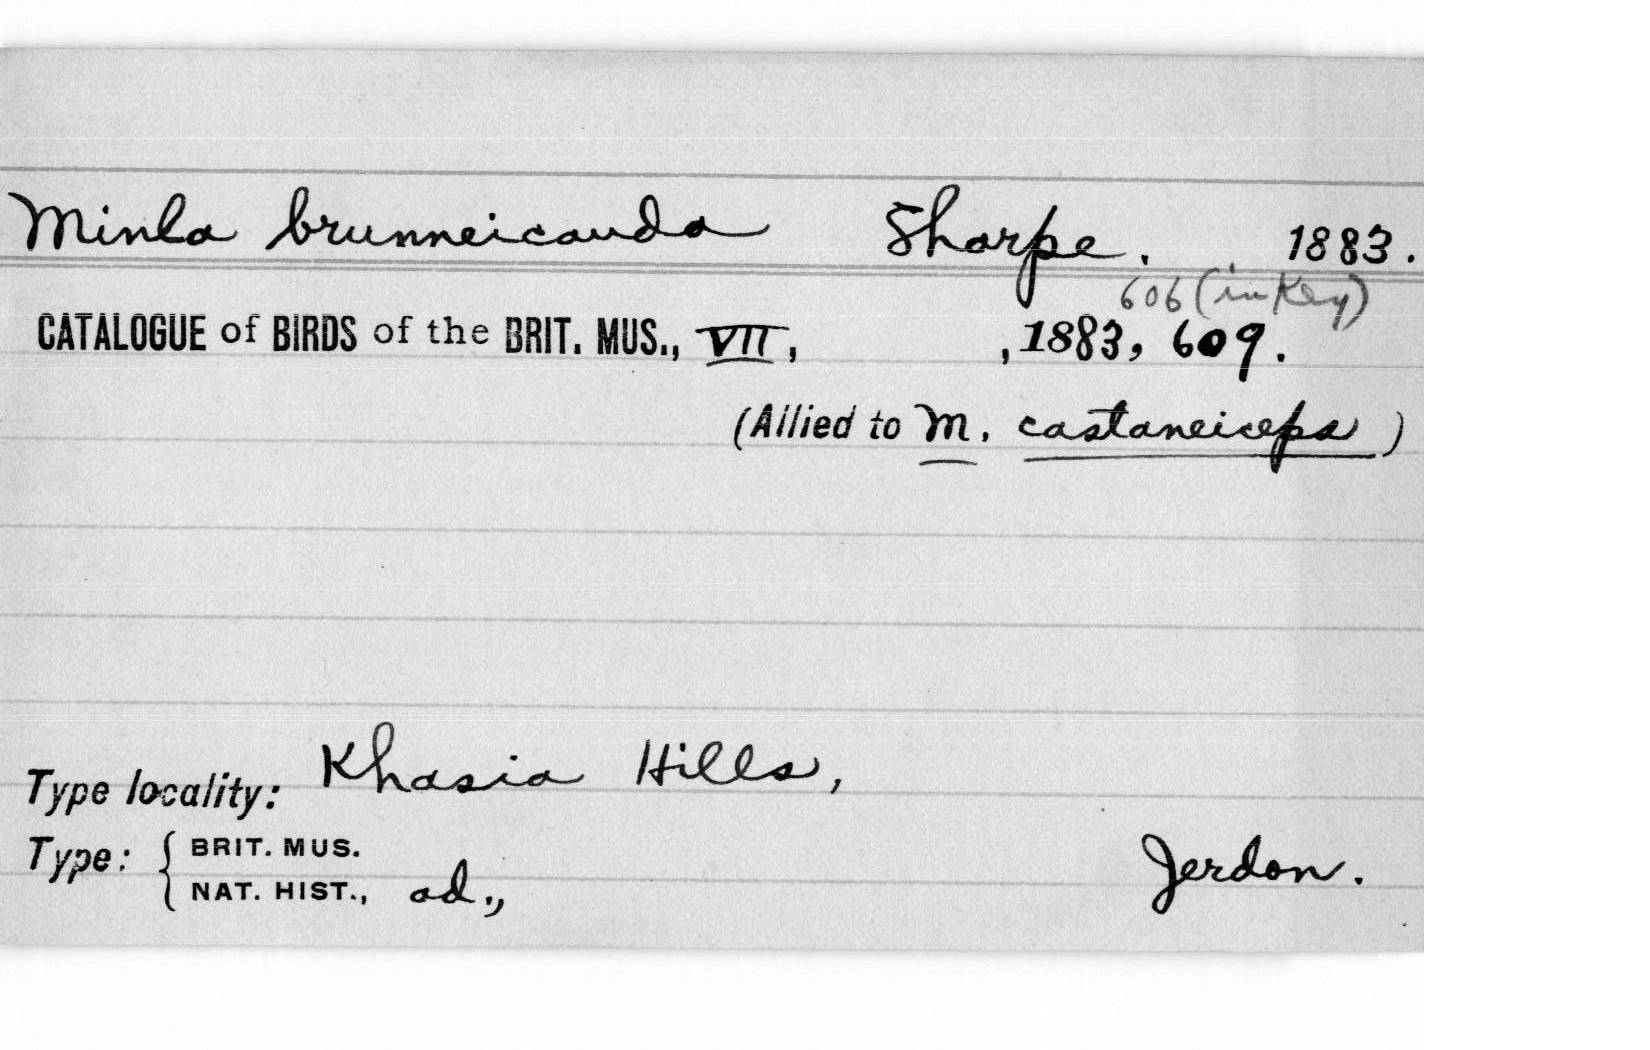 Minla brunneicauda Sharpe. 1883.
606 (in Key)
CATALOGUE of BIRDS of the BRIT. MUS., VII, , 1883, 609.
(Allied to M. castaneiceps)
Type locality: Khasia Hills,
Type: { BRIT. MUS.
NAT. HIST., ad., Jerdon.